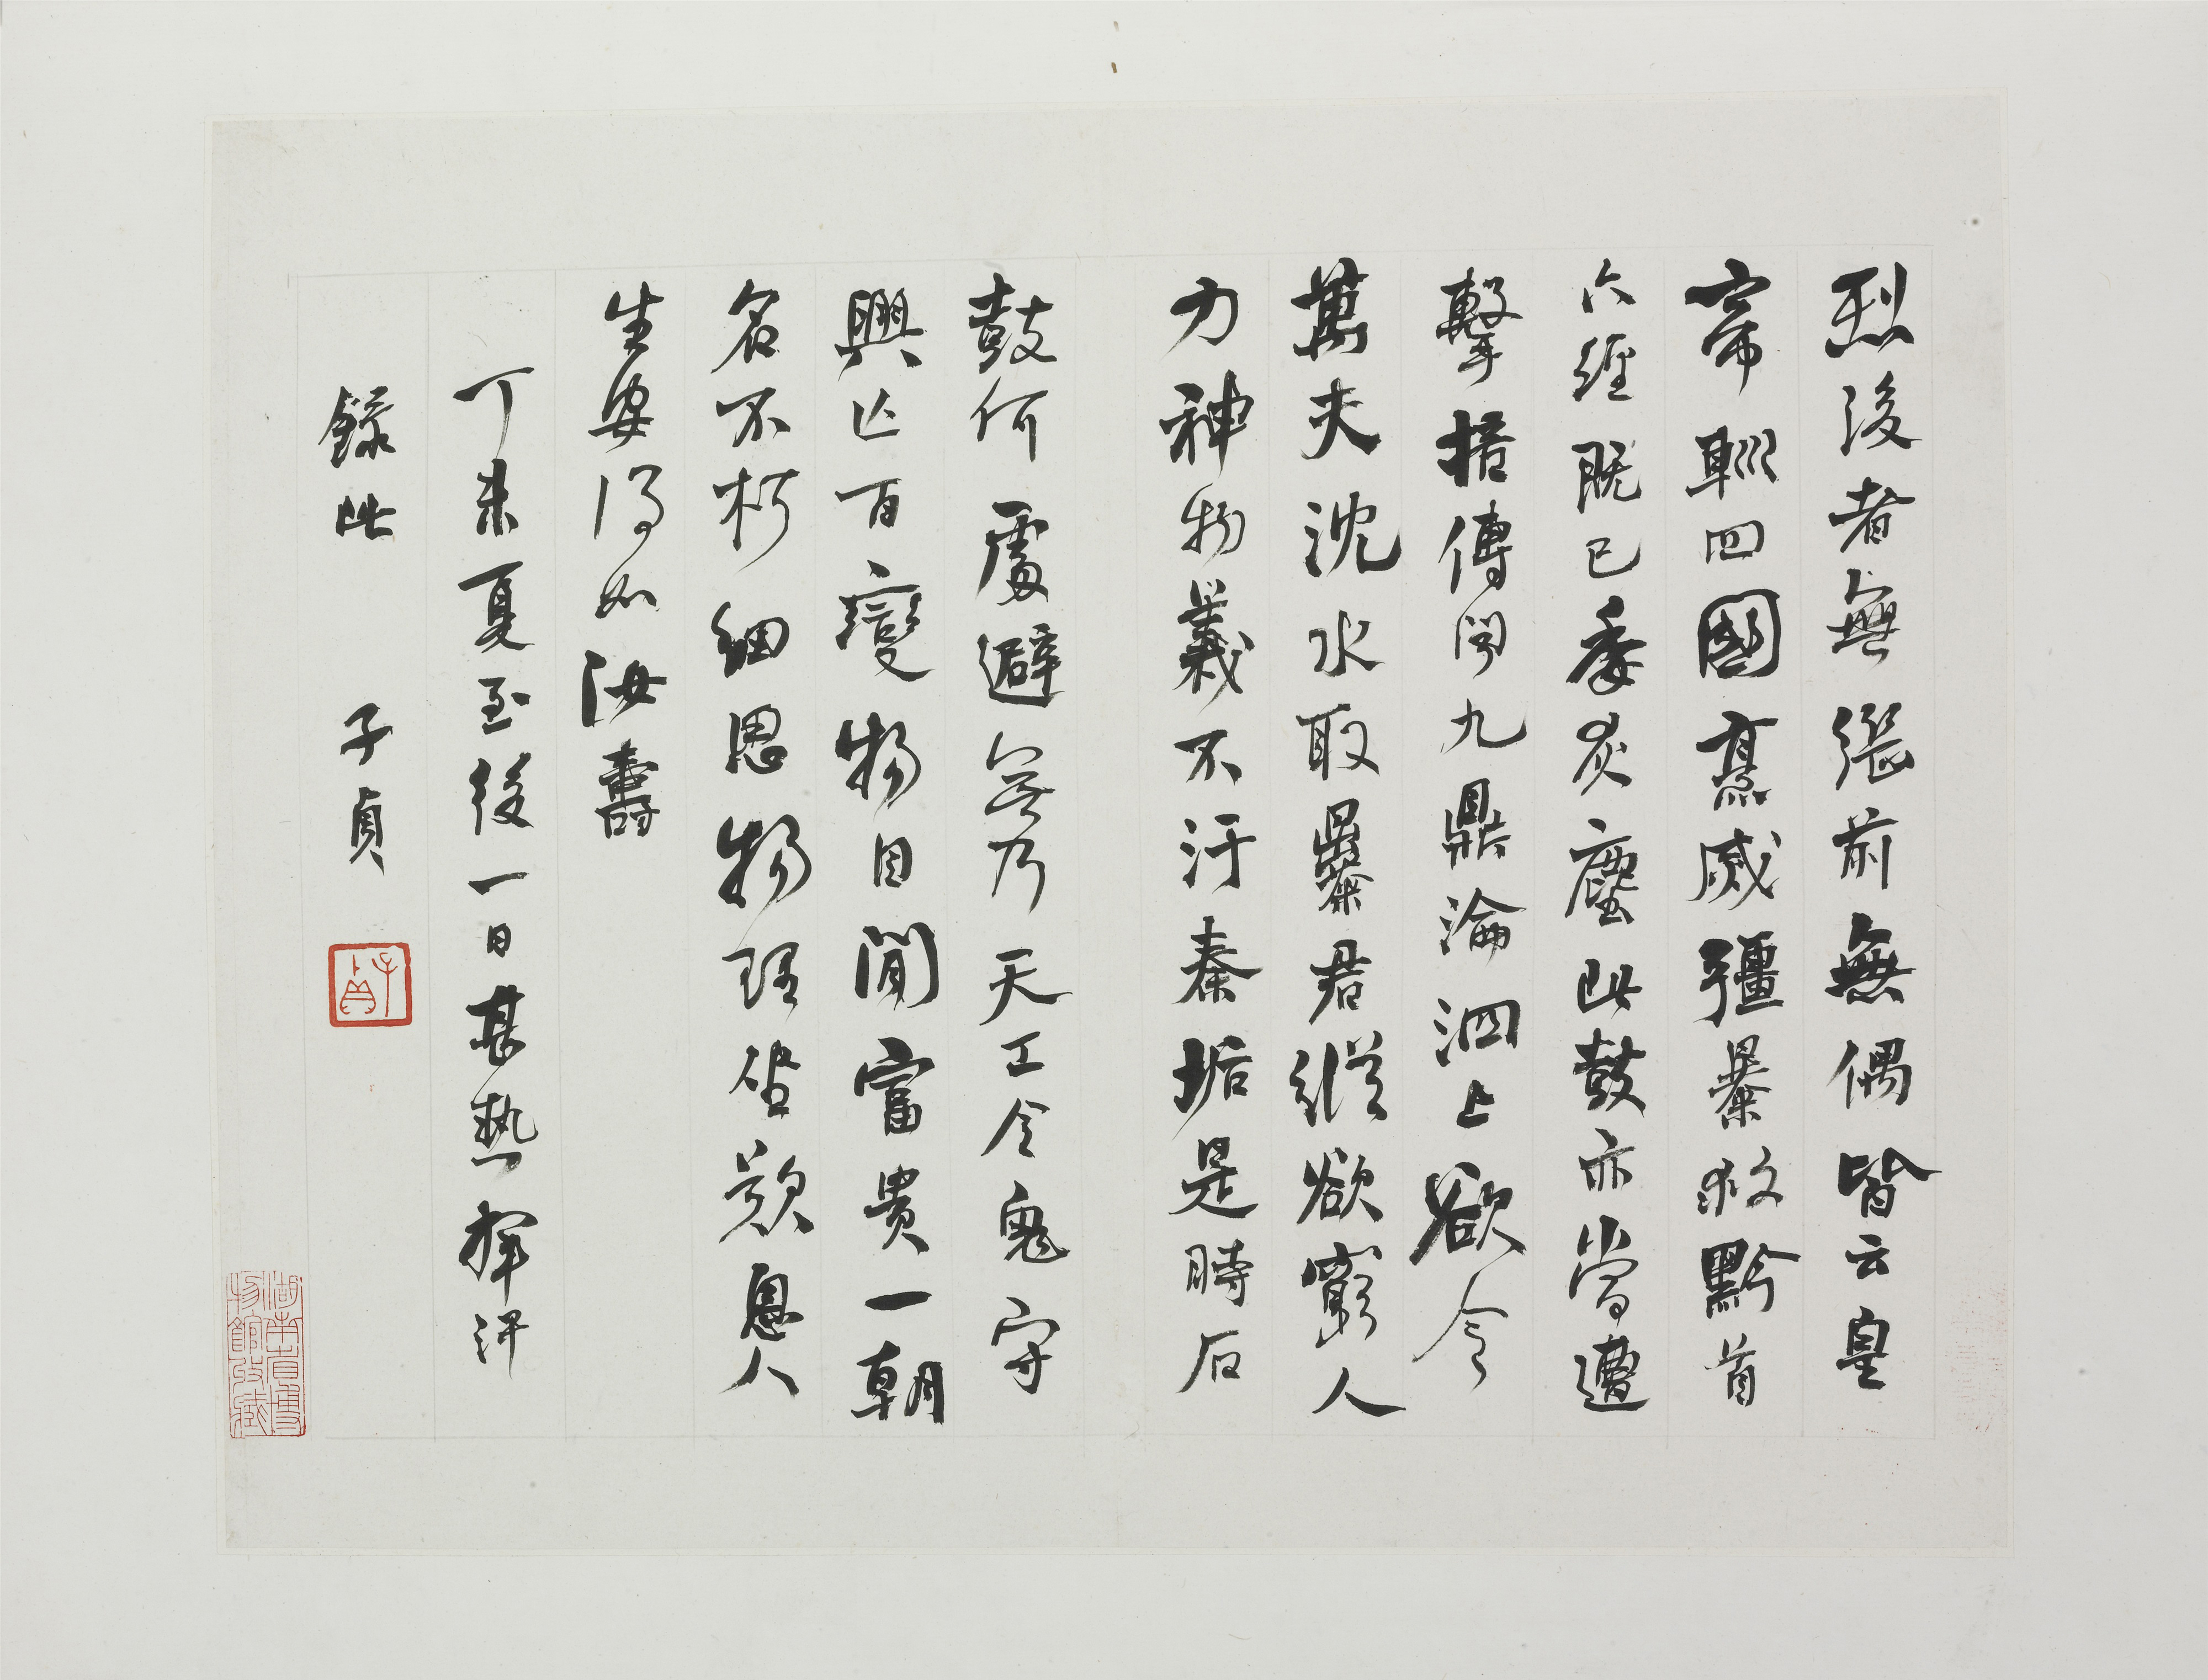 烈後者無繼前無偶皆云皇
帝巡四國烹滅彊暴救黔首
六經既已委灰塵此鼓亦當遭
擊掊傳聞九鼎淪泗上欲令
萬夫沈水取暴君縱欲窮人
力神物義不汙秦垢是時石
鼓何處避無乃天工令鬼守
興亡百變物自閒富貴一朝
名不朽細思物理坐歎息人
生安得如汝壽
丁未夏至後一日甚熱揮汗
錄此 子貞
子貞
湖南省博
物館收藏